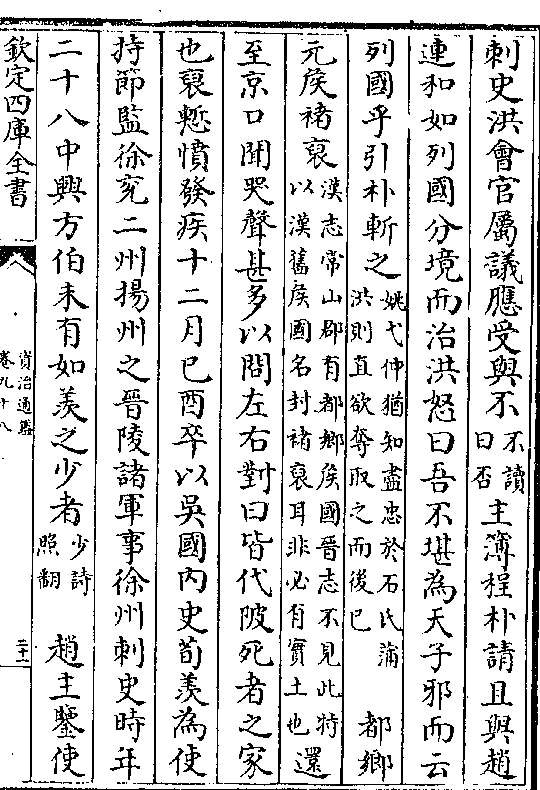 刺史洪會官屬議應受與不不讀曰否主簿程朴請且與趙
連和如列國分境而治洪怒曰吾不堪為天子邪而云
列國乎引朴斬之姚弋仲猶知盡忠於石氏蒲洪則直欲奪取之而後已都鄉
元侯褚裒漢志常山郡有都鄉侯國晉志不見此特以漢舊侯國名封褚裒耳非必有實土也還
至京口聞哭聲甚多以問左右對曰皆代陂死者之家
也裒慙憤發疾十二月已酉卒以吳國內史荀羨為使
持節監徐兗二州揚州之晉陵諸軍事徐州刺史時年
二十八中興方伯未有如羨之少者少詩照翻趙主鑒使
欽定四庫全書
資治通鑑
卷九十八
二十一